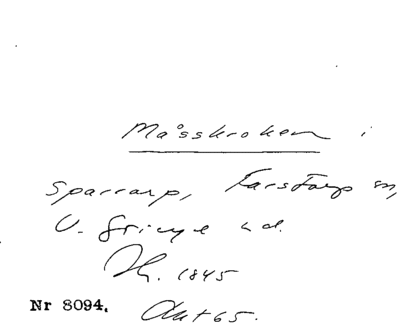 Måsskroken i
Sparrarp, Farstorp sn,
V. Göinge hd.
1845
Nr 8094. Akt 65.